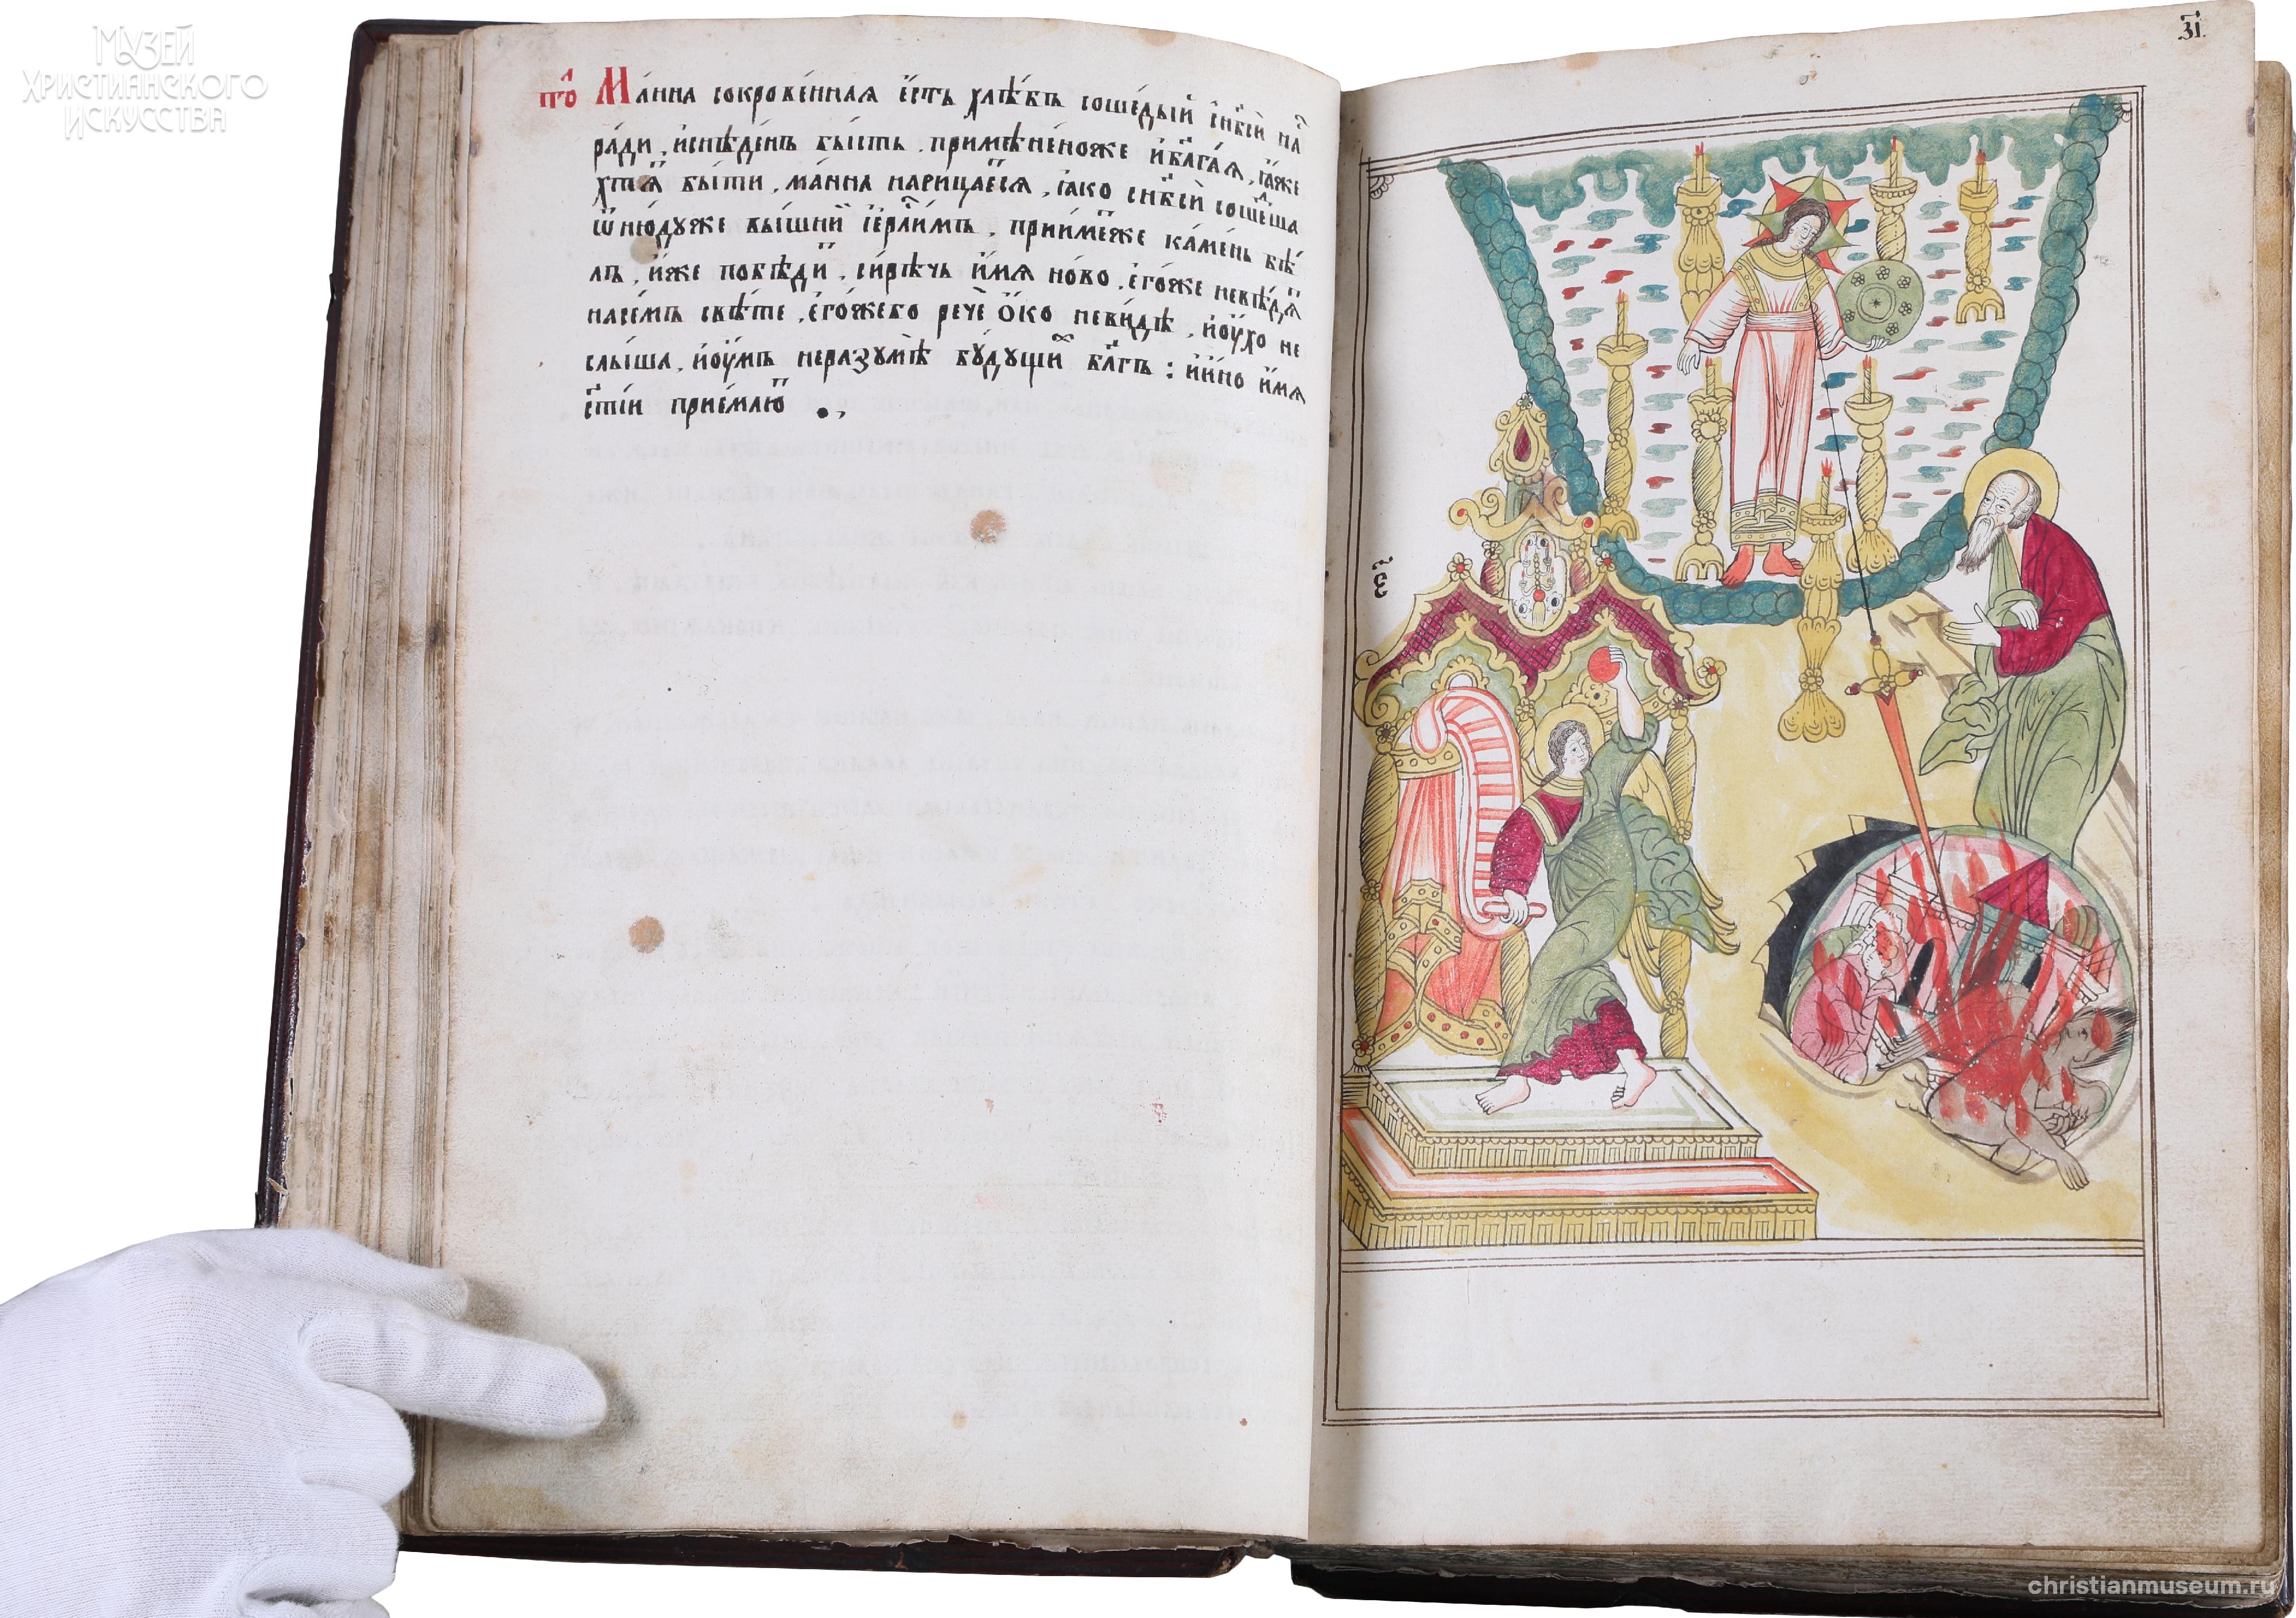 Музей
Христианского
Искусства
то́л Ма́нна сокрове́нная є҆́сть хлѣ́бъ соше́дый с̾нб҃си на́с
ра́ди, и҆снѣ́денъ бы́сть. примѣне́ноже и҆бл҃га́я, ꙗ҆́же
хтѧ́т бы́ти, ма́нна нарица́етсѧ, ꙗ҆́ко с̾нб҃си соше́дша
ѿню́дуже вы́шнїй і҆ер҃ли́мъ. прїи́метже ка́мень бѣ́
лъ, и҆́же побѣди́т, си́рѣчь и҆́мѧ но́во, є҆го́же невѣ́дѧт
насе́мъ свѣ́те, є҆го́жебо речѐ ѻ҆́ко неви́дѣ, и҆ѹ҆́хо не
слы́ша, и҆ѹ҆́мъ неразумѣ̀ бу́дущих бл҃гъ: и҆и҆́но и҆́мѧ
ст҃і́и прїе́млют
з҃і
є҃
christianmuseum.ru